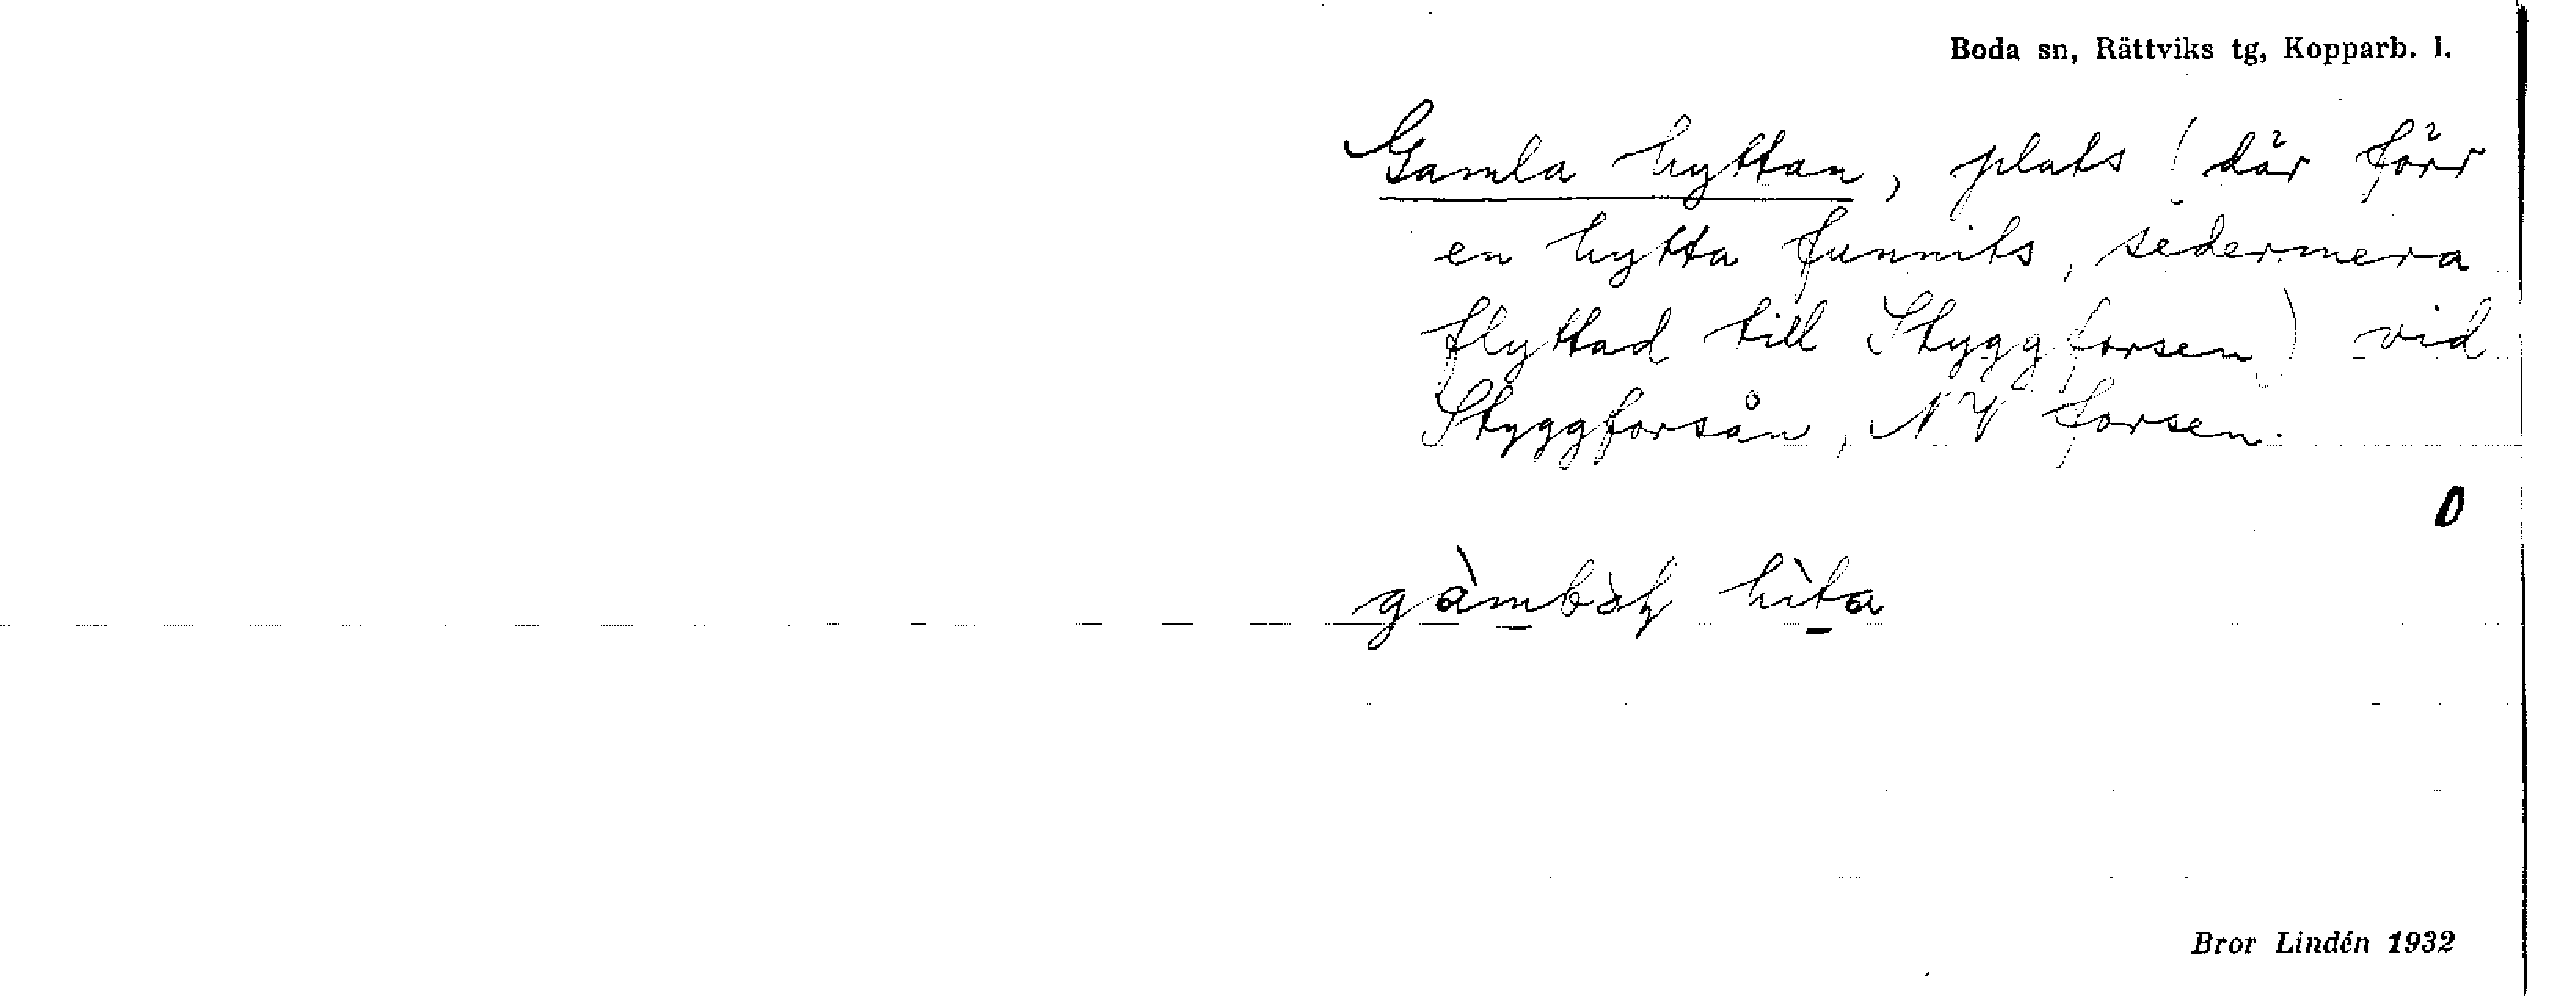 Boda sn, Rättviks tg, Kopparb. l.
Gamla hyttan, plats (där förr
en hytta funnits, sedermera
flyttad till Styggforsen) vid
Styggforsån, NV forsen.
0
hìta
Bror Lindén 1932